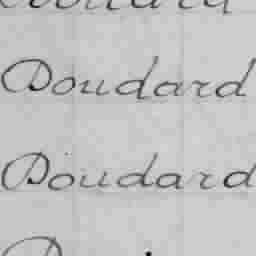 Doudard
Doudard